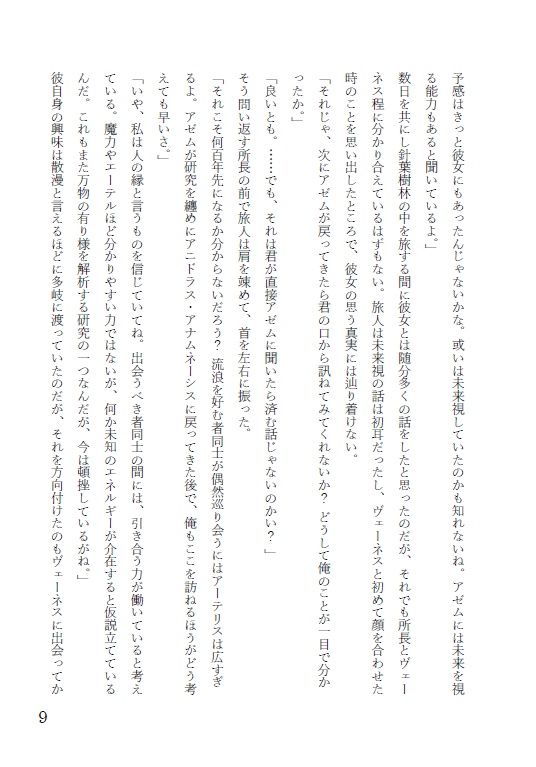 予感はきっと彼女にもあったんじゃないかな。或いは未来視していたのかも知れないね。アゼムには未来を視
る能力もあると聞いているよ。」
数日を共にし針葉樹林の中を旅する間に彼女とは随分多くの話をしたと思ったのだが、それでも所長とヴェー
ネス程に分かり合えているはずもない。旅人は未来視の話は初耳だったし、ヴェーネスと初めて顔を合わせた
時のことを思い出したところで、彼女の思う真実には辿り着けない。
「それじゃ、次にアゼムが戻ってきたら君の口から訊ねてみてくれないか？ どうして俺のことが一目で分か
ったか。」
「良いとも。……でも、それは君が直接アゼムに聞いたら済む話じゃないのかい？」
そう問い返す所長の前で旅人は肩を竦めて、首を左右に振った。
「それこそ何百年先になるか分からないだろう？ 流浪を好む者同士が偶然巡り会うにはアーテリスは広すぎ
るよ。アゼムが研究を纏めにアニドラス・アナムネーシスに戻ってきた後で、俺もここを訪ねるほうがどう考
えても早いさ。」
「いや、私は人の縁と言うものを信じていてね。出会うべき者同士の間には、引き合う力が働いていると考え
ている。魔力やエーテルほど分かりやすい力ではないが、何か未知のエネルギーが介在すると仮説立てている
んだ。これもまた万物の有り様を解析する研究の一つなんだが、今は頓挫しているがね。」
彼自身の興味は散漫と言えるほどに多岐に渡っていたのだが、それを方向付けたのもヴェーネスに出会ってか
9